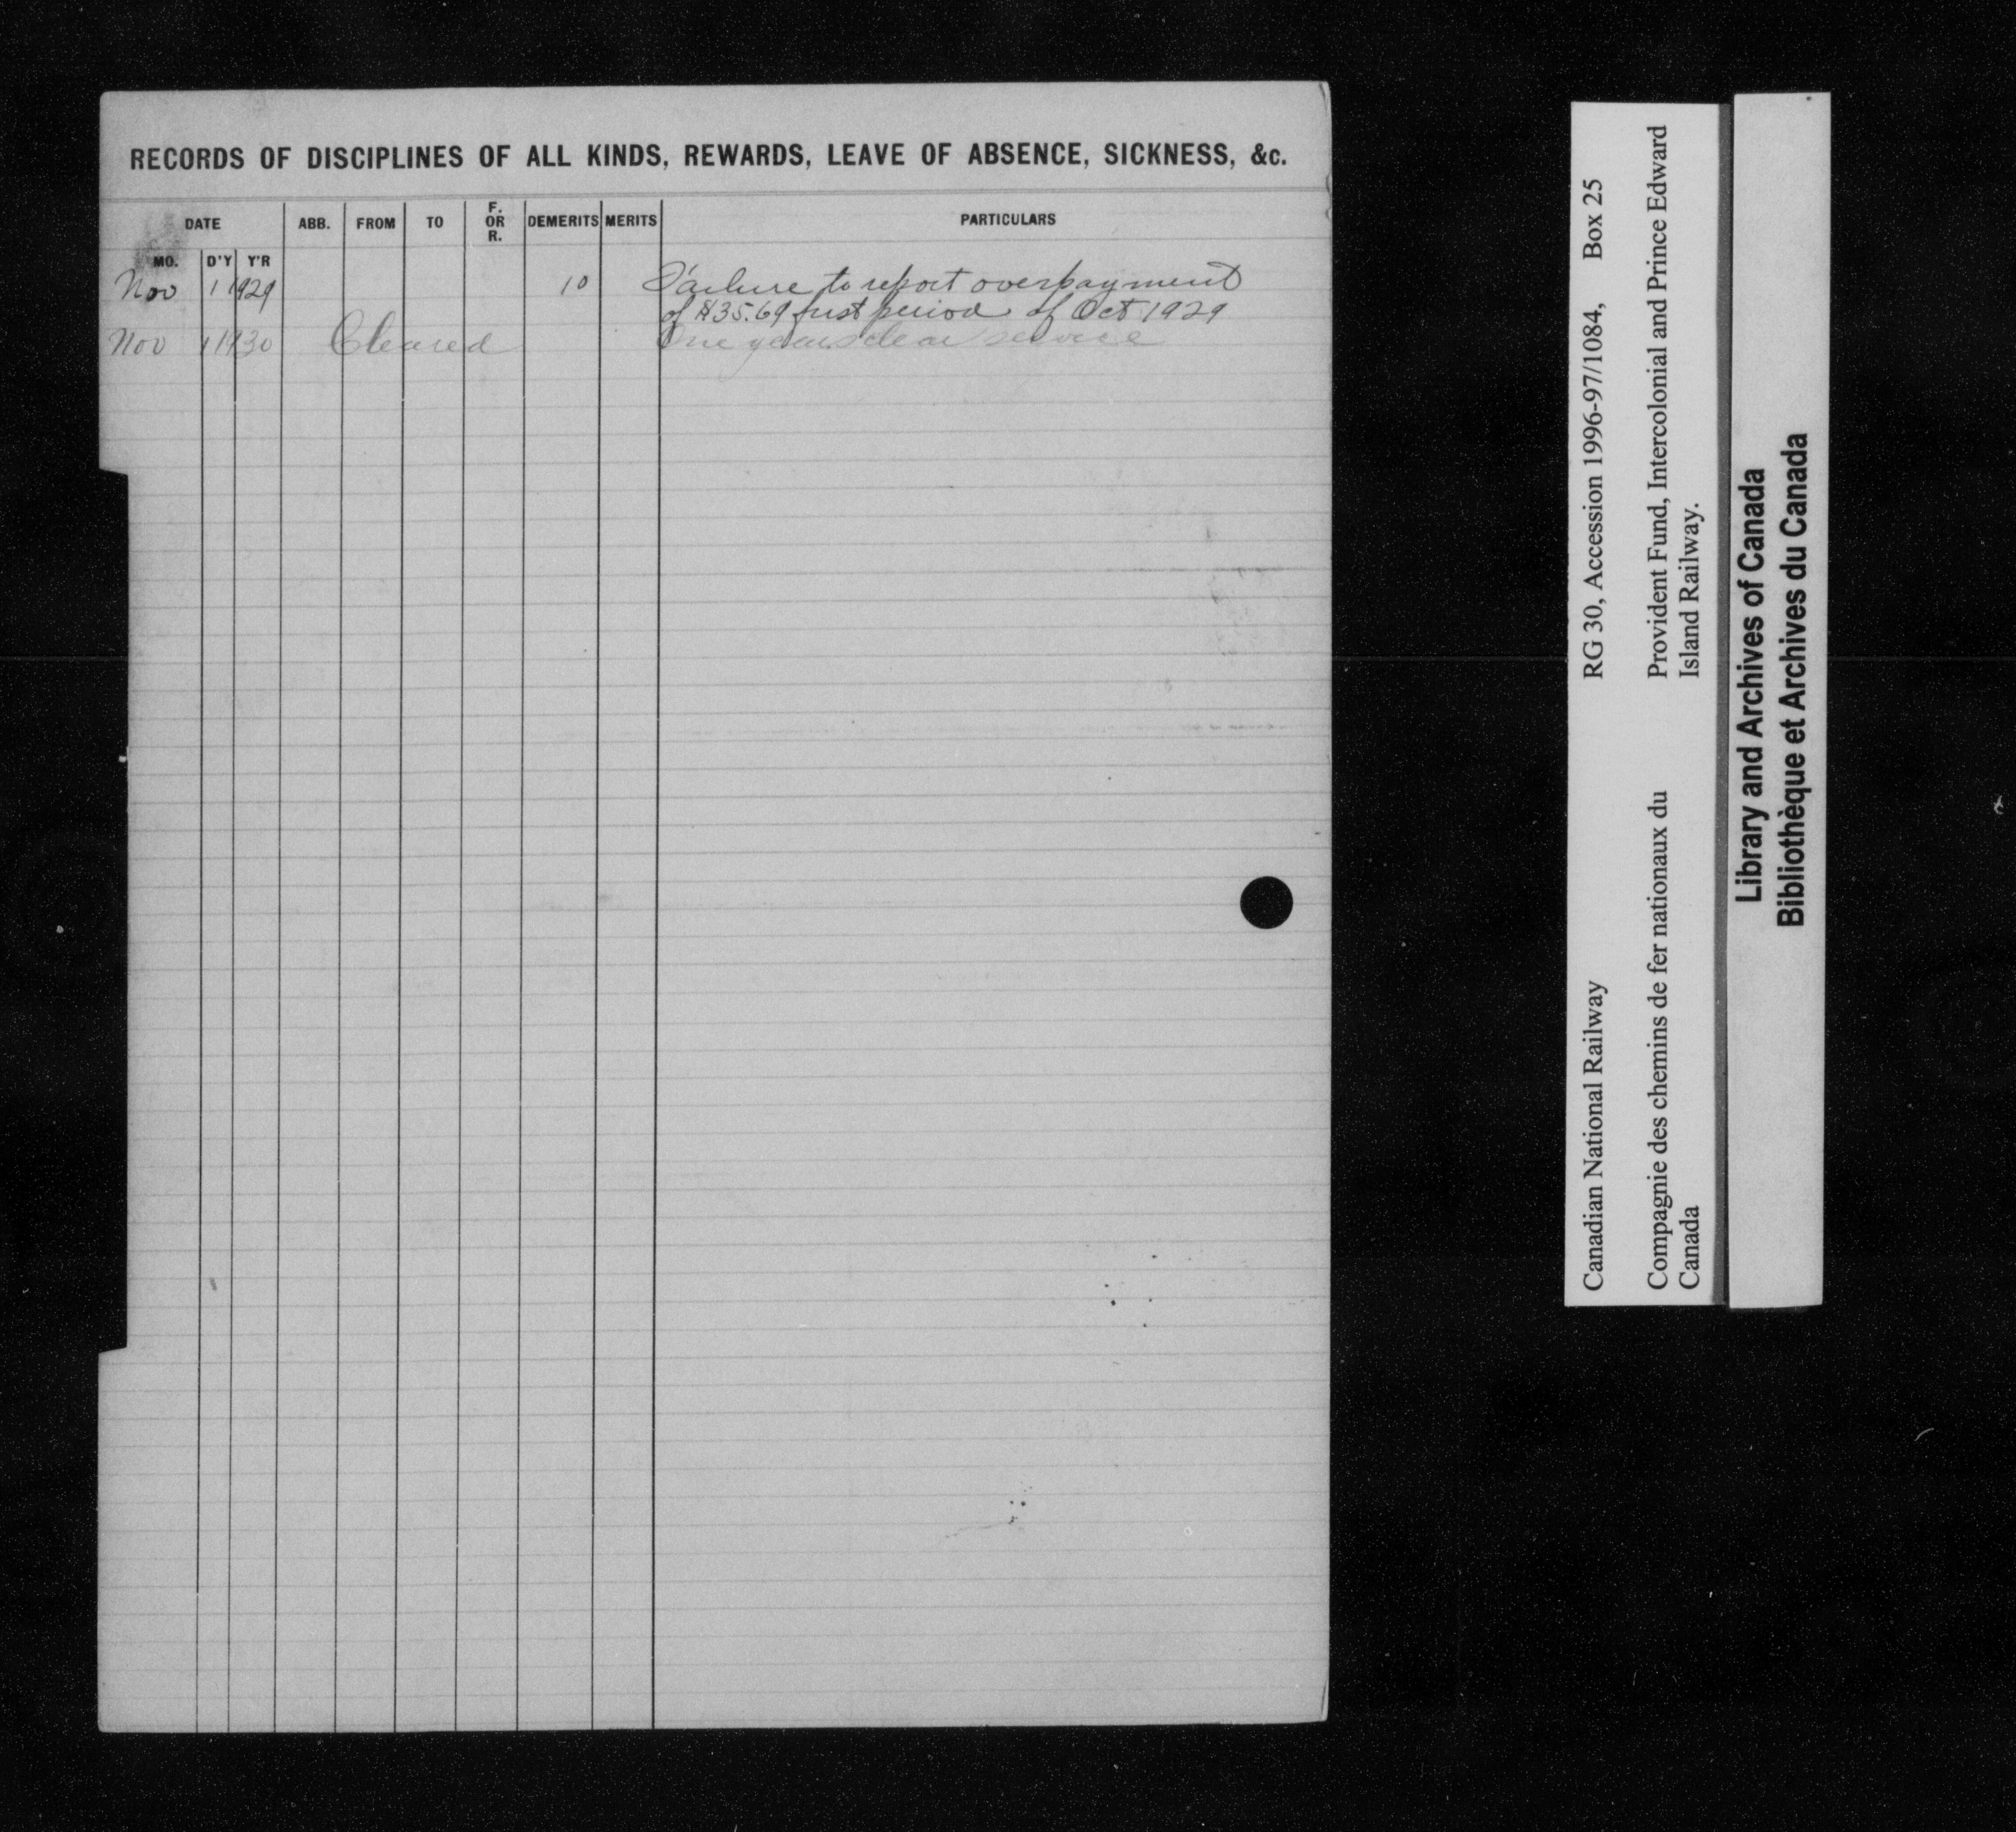 RECORDS OF DISCIPLINES OF ALL KINDS, REWARDS, LEAVE OF ABSENCE, SICKNESS, &c.
DATE ABB. FROM TO F. OR R. DEMERITS MERITS PARTICULARS
MO. D'Y Y'R
Nov 1 1929 10 Failure to report overpayment
of $35.69 first period of Oct 1929
Nov 1 1930 Cleared One years clear service
Canadian National Railway RG 30, Accession 1996-97/1084, Box 25
Compagnie des chemins de fer nationaux du Provident Fund, Intercolonial and Prince Edward
Canada Island Railway.
Library and Archives of Canada
Bibliothèque et Archives du Canada